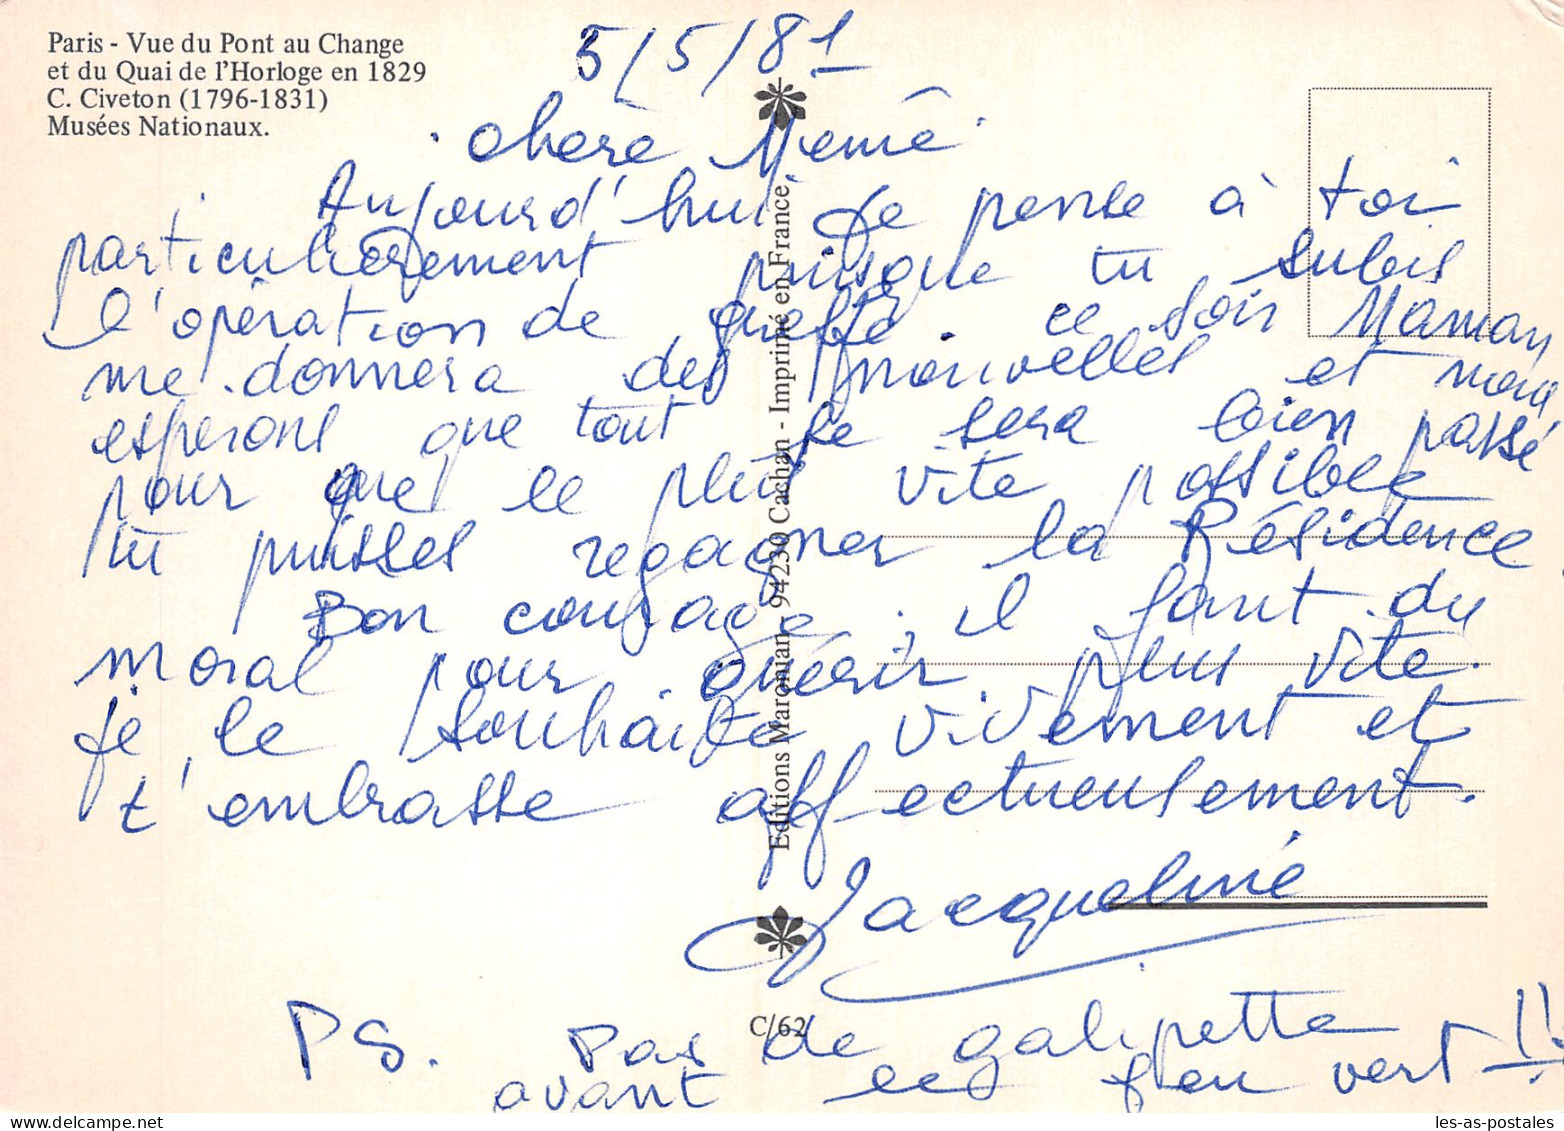 Paris - Vue du Pont au Change
et du Quai de l'Horloge en 1829
C. Civeton (1796-1831)
Musées Nationaux.
5/5/81
chère Mémé
Aujourd'hui je pense à toi
particulièrement puisque tu subis
l'opération de greffe. ce soir Maman
me donnera des nouvelles et nous
espérons que tout se sera bien passé
pour que le plus vite possible
tu puisses regagner la Résidence.
Bon courage, il faut du
moral pour guérir plus vite.
je le souhaite vivement et
t'embrasse affectueusement.
Jacqueline
PS. Pas de galipette
avant le feu vert !!
Editions Maronian - 94230 Cachan - Imprimé en France
C/62
les-as-postales